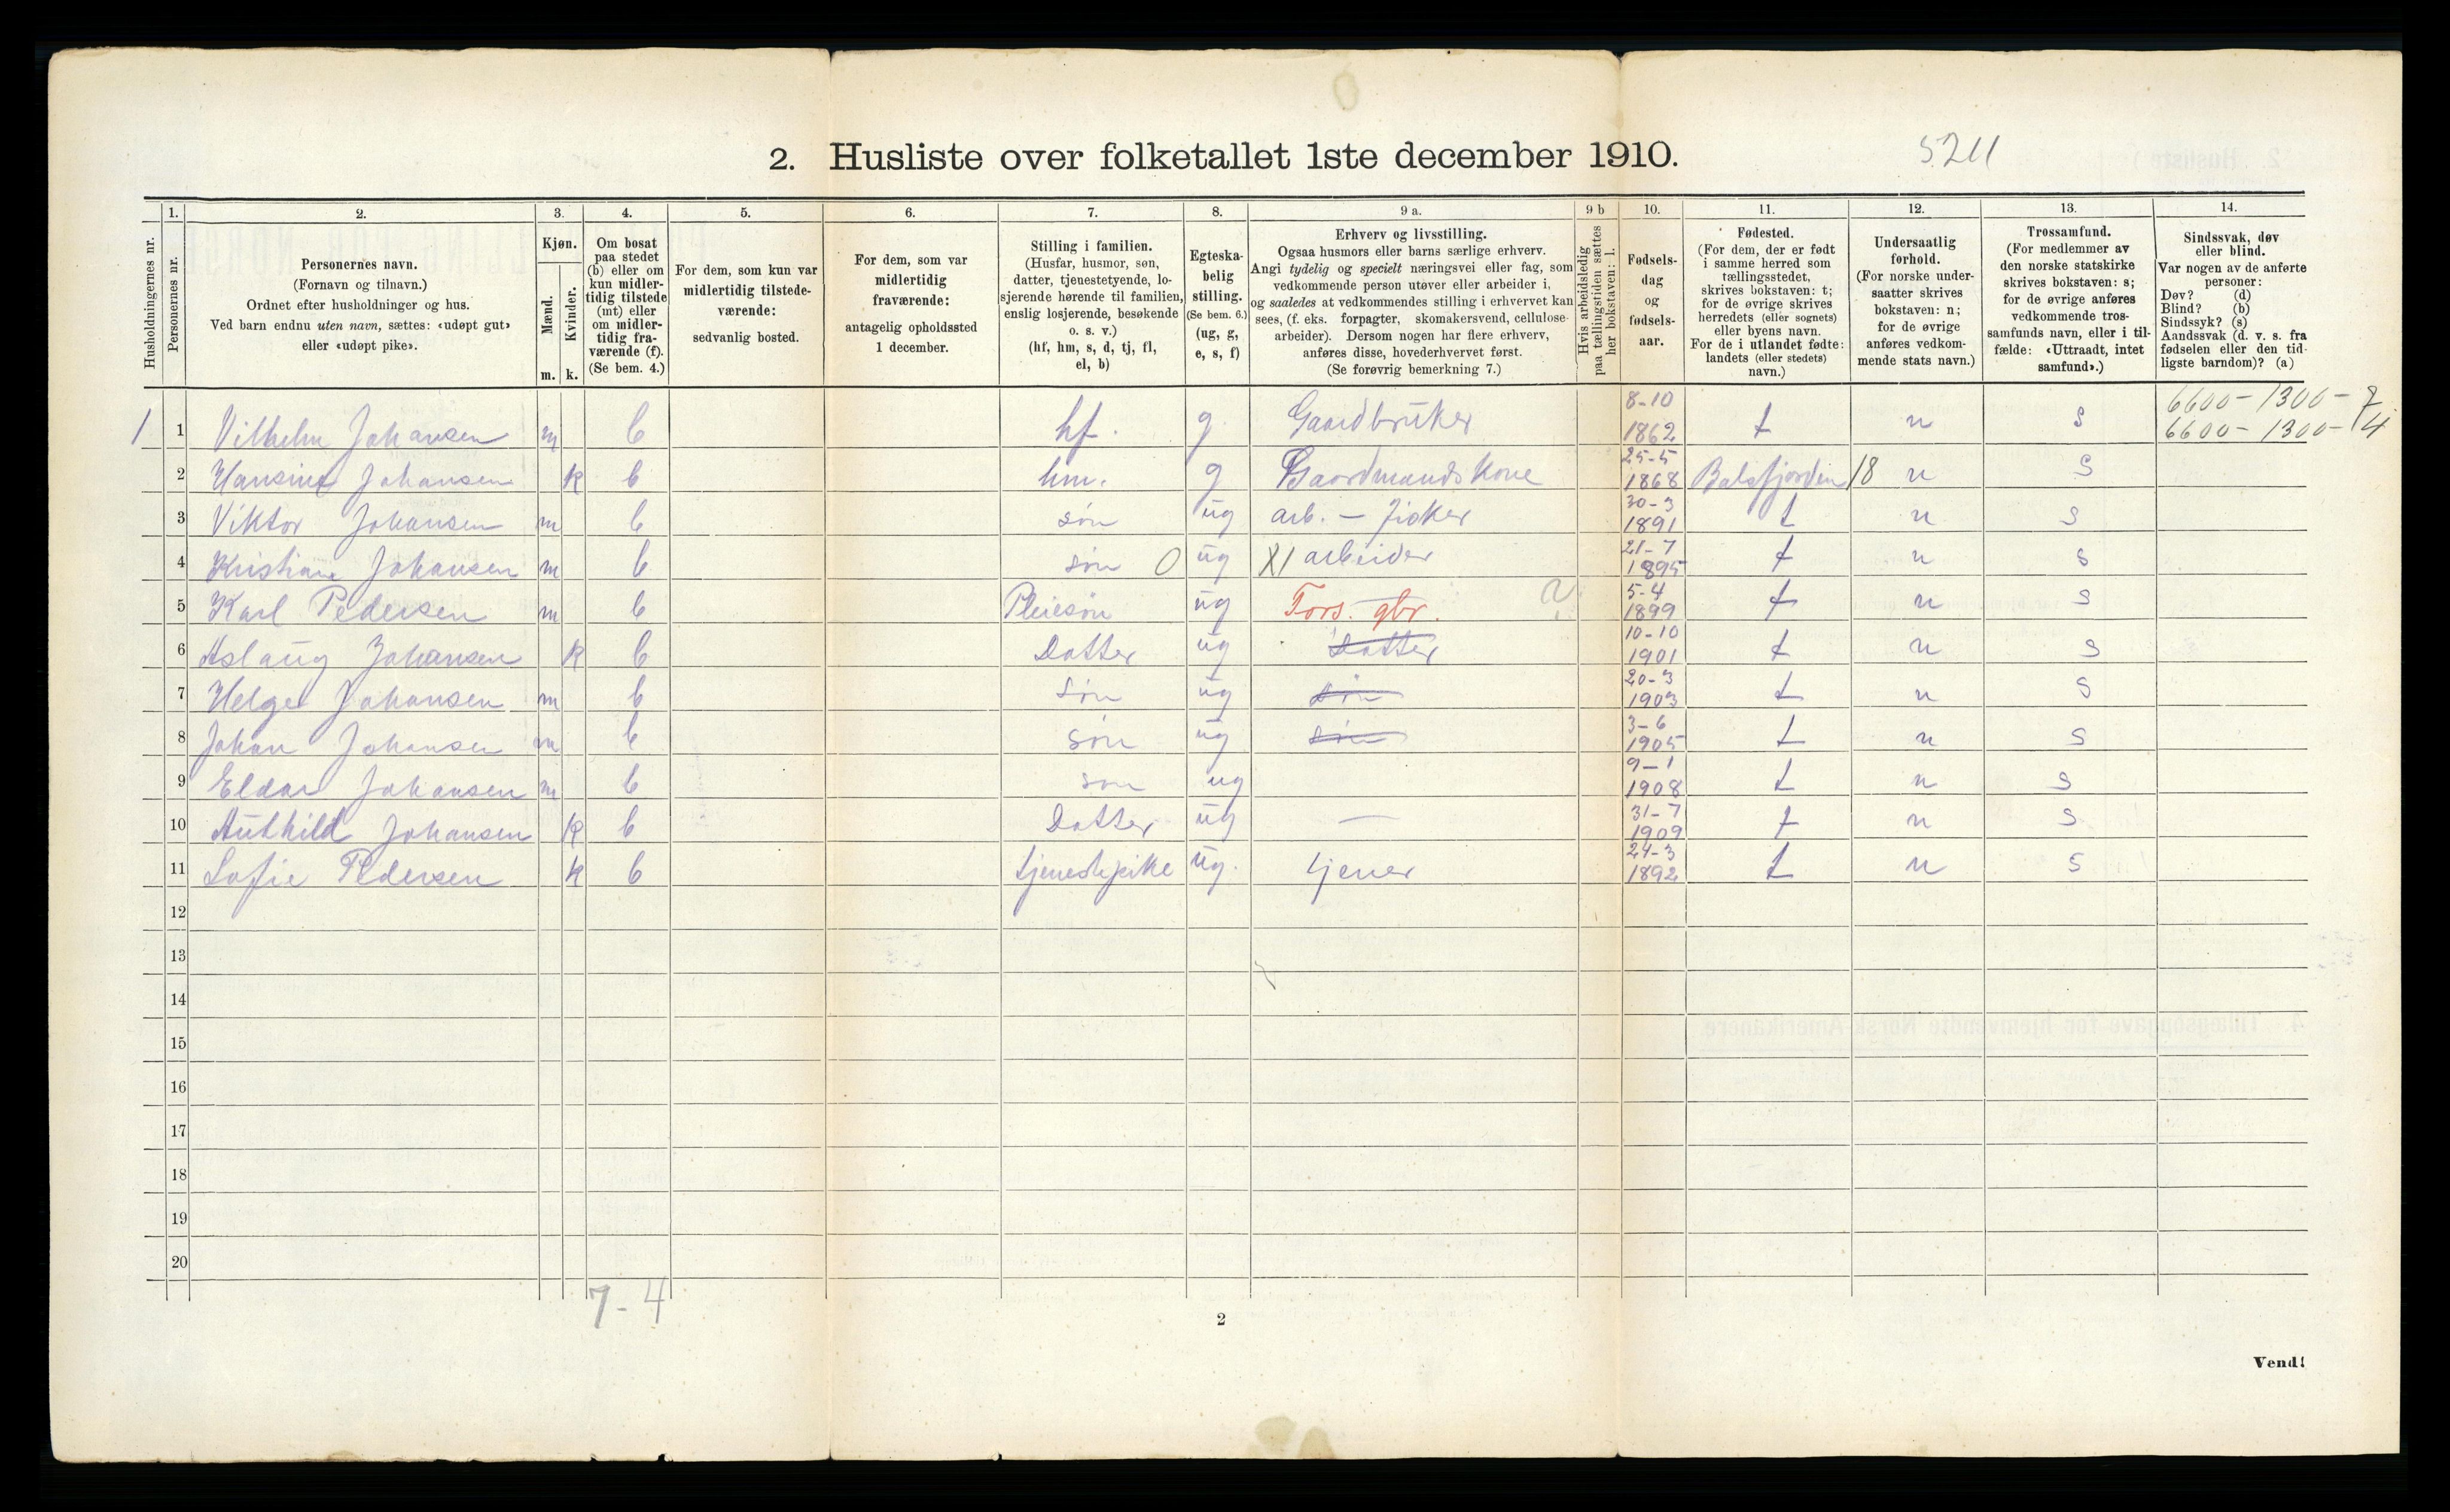 2. Husliste over folketallet 1ste december 1910.
5211
Husholdningernes nr.
1.
Personernes nr.
2.
Personernes navn.
(Fornavn og tilnavn.)
Ordnet efter husholdninger og hus.
Ved barn endnu uten navn, sættes: «udøpt gut»
eller «udøpt pike».
3.
Kjøn.
Mænd.
Kvinder.
m. k.
4.
Om bosat
paa stedet
(b) eller om
kun midler-
tidig tilstede
(mt) eller
om midler-
tidig fra-
værende (f).
(Se bem. 4.)
5.
For dem, som kun var
midlertidig tilstede-
værende:
sedvanlig bosted.
6.
For dem, som var
midlertidig
fraværende:
antagelig opholdssted
1 december.
7.
Stilling i familien.
(Husfar, husmor, søn,
datter, tjenestetyende, lo-
sjerende hørende til familien,
enslig losjerende, besøkende
o. s. v.)
(hf, hm, s, d, tj, fl,
el, b)
8.
Egteska-
belig
stilling.
(Se bem. 6.)
(ug, g,
e, s, f)
9 a.
Erhverv og livsstilling.
Ogsaa husmors eller barns særlige erhverv.
Angi tydelig og specielt næringsvei eller fag, som
vedkommende person utøver eller arbeider i,
og saaledes at vedkommendes stilling i erhvervet kan
sees, (f. eks. forpagter, skomakersvend, cellulose-
arbeider). Dersom nogen har flere erhverv,
anføres disse, hovederhvervet først.
(Se forøvrig bemerkning 7.)
9 b
Hvis arbeidsledig
paa tællingstiden sættes
her bokstaven: l.
10.
Fødsels-
dag
og
fødsels-
aar.
11.
Fødested.
(For dem, der er født
i samme herred som
tællingsstedet,
skrives bokstaven: t;
for de øvrige skrives
herredets (eller sognets)
eller byens navn.
For de i utlandet fødte:
landets (eller stedets)
navn.)
12.
Undersaatlig
forhold.
(For norske under-
saatter skrives
bokstaven: n;
for de øvrige
anføres vedkom-
mende stats navn.)
13.
Trossamfund.
(For medlemmer av
den norske statskirke
skrives bokstaven: s;
for de øvrige anføres
vedkommende tros-
samfunds navn, eller i til-
fælde: «Uttraadt, intet
samfund».)
14.
Sindssvak, døv
eller blind.
Var nogen av de anførte
personer:
Døv? (d)
Blind? (b)
Sindssyk? (s)
Aandssvak (d. v. s. fra
fødselen eller den tid-
ligste barndom)? (a)
1 1 Vilhelm Johansen m b hf. g Gaardbruker 8-10 1862 t n s 6600 - 1300 - 7
6600 - 1300 - 14
2 Hansine Johansen k b hm. g Gaardmandskone 25-5 1868 Balsfjorden 18 n s
3 Viktor Johansen m b søn ug arb. - Fisker 30-3 1891 t n s
4 Kristian Johansen m b søn 0 ug X1 arbeider 21-7 1895 t n s
5 Karl Pedersen m b Pleiesøn ug Fors. gbr. 2 5-4 1899 t n s
6 Aslaug Johansen k b Datter ug Datter 10-10 1901 t n s
7 Helge Johansen m b søn ug søn 20-3 1903 t n s
8 Johan Johansen m b søn ug søn 3-6 1905 t n s
9 Eldar Johansen m b søn ug 9-1 1908 t n s
10 Authild Johansen k b Datter ug — 31-7 1909 t n s
11 Sofie Pedersen k b tjenestepike ug. tjener 24-3 1892 t n s
12
13
14
15
16
17
18
19
20
7-4
2
Vend!